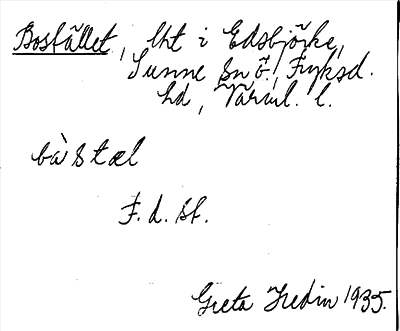 Bostället, lht i Edsbjörke,
Sunne sn ö., Fryksd.
hd, Värml. l.
bàstæl
F. d. st.
Greta Hedin 1935.